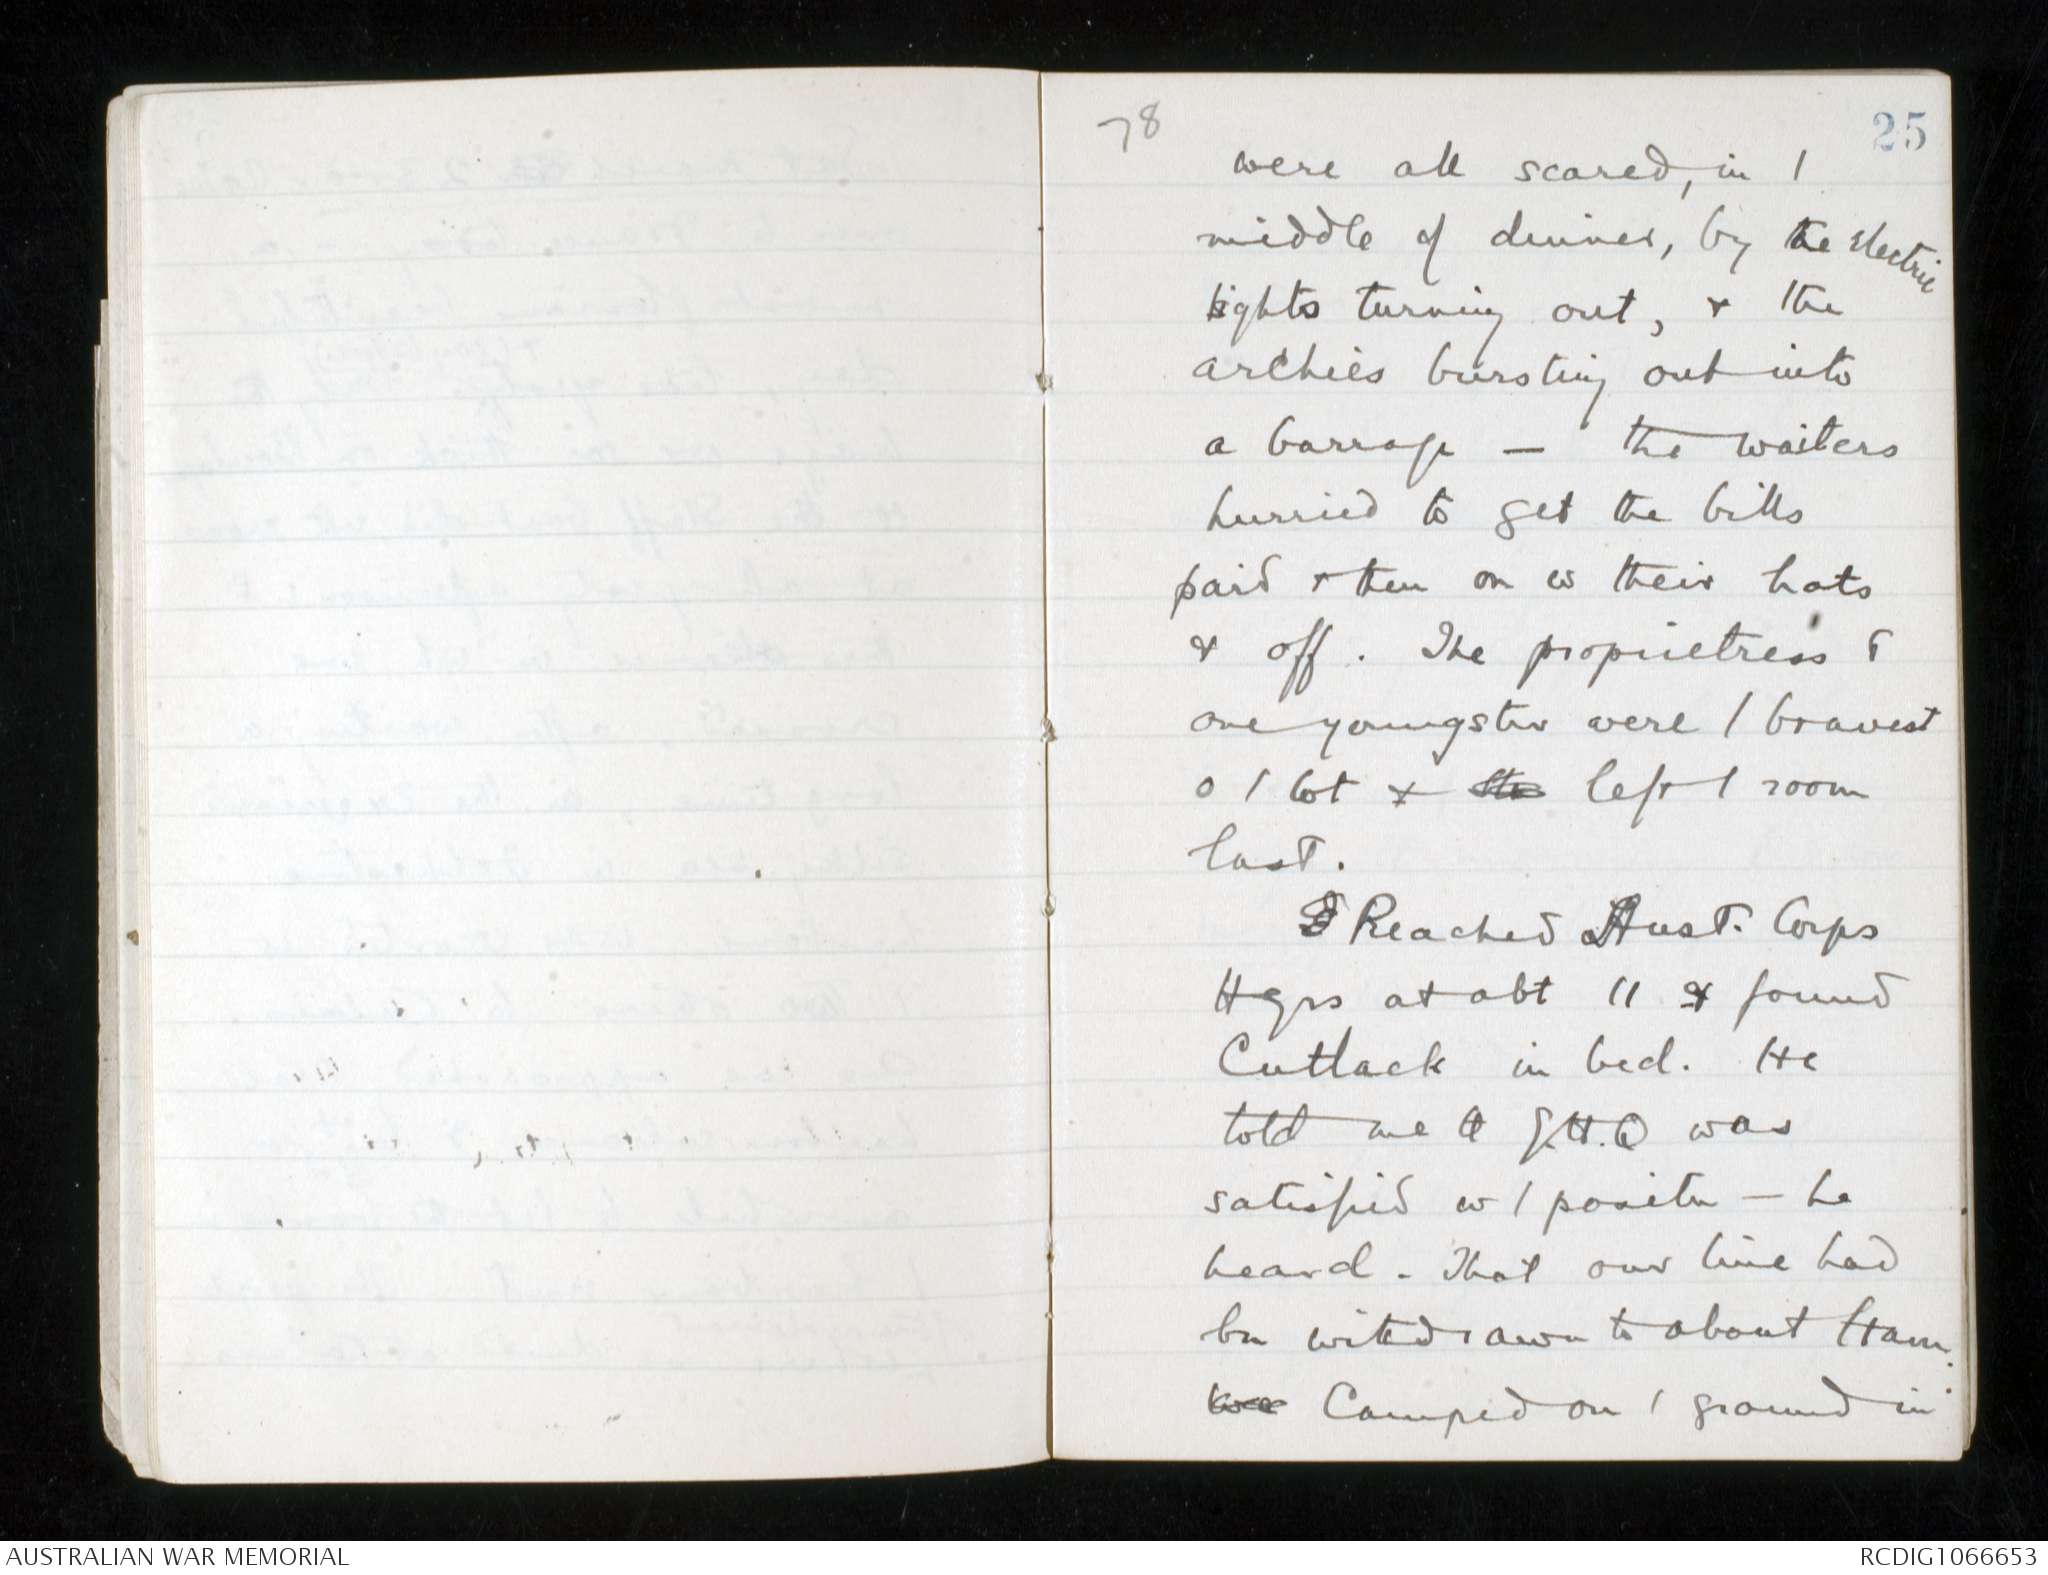 78
25
were all scared, in /
middle of dinner, by the electric
lights turning out, & the
archies bursting out into
a barrage — the waiters
hurried to get the bills
paid & then on w their hats
& off. The proprietress &
one youngster were / bravest
o / lot & the left / room
last.
I Reached Aust. Corps
Hqrs at abt 11 & found
Cutlack in bed. He
told me tt G.H.Q was
satisfied w / positn — he
heard. That our line had
bn withdrawn to about Ham.
Camped on / ground in
AUSTRALIAN WAR MEMORIAL
RCDIG1066653